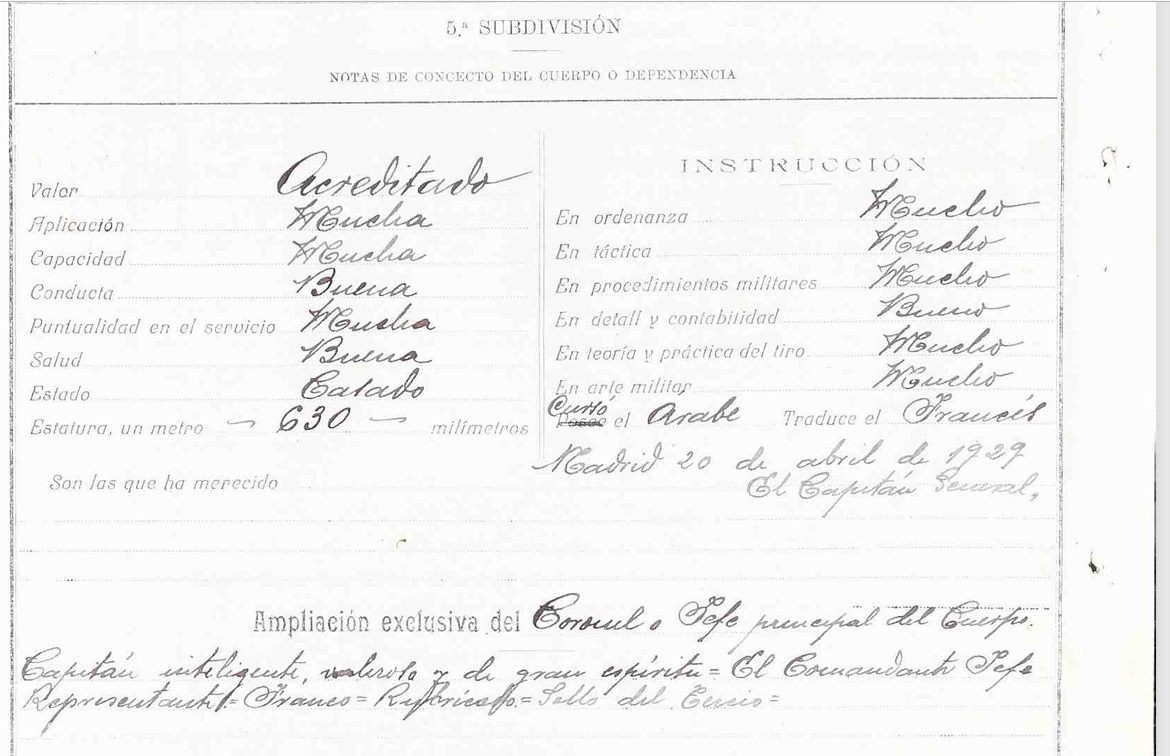 5.ª SUBDIVISIÓN
NOTAS DE CONCECTO DEL CUERPO O DEPENDENCIA
Valor Acreditado
Aplicación Mucha
Capacidad Mucha
Conducta Buena
Puntualidad en el servicio Mucha
Salud Buena
Estado Casado
Estatura, un metro - 630 - milímetros
Son las que ha merecido
INSTRUCCIÓN
En ordenanza Mucho
En táctica Mucho
En procedimientos militares Mucho
En detall y contabilidad Bueno
En teoría y práctica del tiro Mucho
En arte militar Mucho
Cursó
Posee el Arabe Traduce el Francés
Madrid 20 de abril de 1929
El Capitán General,
Ampliación exclusiva del Coronel o Jefe principal del Cuerpo.
Capitán inteligente, valeroso y de gran espíritu = El Comandante Jefe
Representante = Franco = Rubricado. = Sello del Tercio =